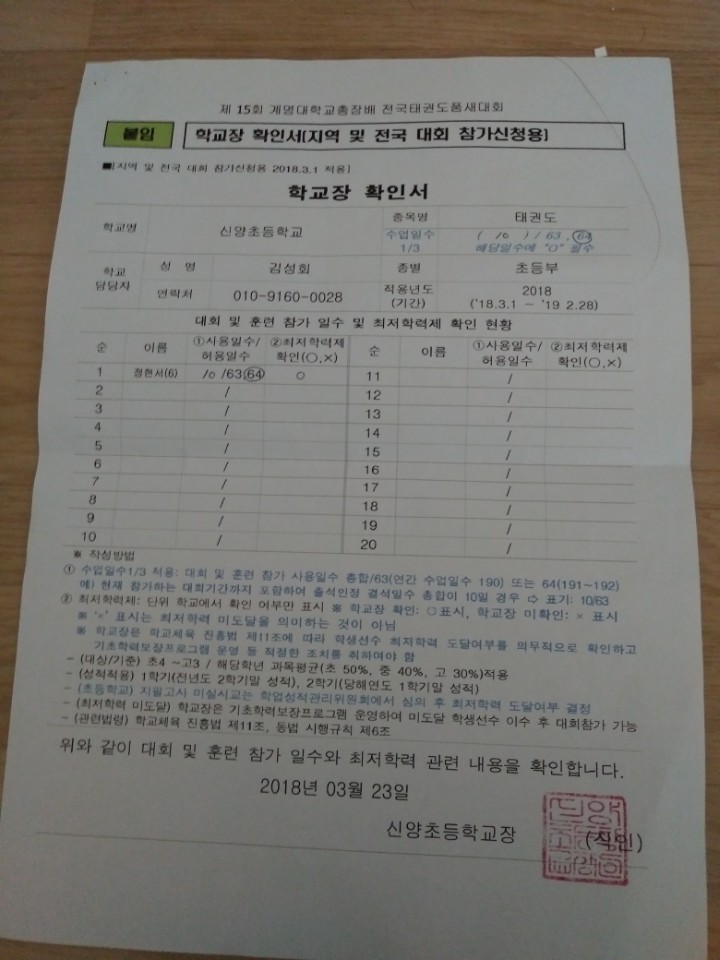 제 15회 계명대학교총장배 전국태권도품새대회
붙임 학교장 확인서(지역 및 전국 대회 참가신청용)
■[지역 및 전국 대회 참가신청용 2018.3.1 적용]
학교장 확인서
학교명 신양초등학교 종목명 태권도
수업일수 1/3 ( 10 ) / 63 , 64
해당일수에 "O" 필수
학교 담당자 성 명 김성회 종별 초등부
연락처 010-9160-0028 적용년도 (기간) 2018 ('18.3.1 ~ '19 2.28)
대회 및 훈련 참가 일수 및 최저학력제 확인 현황
순 이름 ①사용일수/허용일수 ②최저학력제 확인(○,×) 순 이름 ①사용일수/허용일수 ②최저학력제 확인(○,×)
1 정현서(6) 10 /63,64 ○ 11 /
2 / 12 /
3 / 13 /
4 / 14 /
5 / 15 /
6 / 16 /
7 / 17 /
8 / 18 /
9 / 19 /
10 / 20 /
※ 작성방법
① 수업일수1/3 적용: 대회 및 훈련 참가 사용일수 총합/63(연간 수업일수 190) 또는 64(191~192)
예) 현재 참가하는 대회기간까지 포함하여 출석인정 결석일수 총합이 10일 경우 ⇨ 표기: 10/63
② 최저학력제: 단위 학교에서 확인 여부만 표시 ※ 학교장 확인: ○표시, 학교장 미확인: × 표시
※ '×' 표시는 최저학력 미도달을 의미하는 것이 아님
※ 학교장은 학교체육 진흥법 제11조에 따라 학생선수 최저학력 도달여부를 의무적으로 확인하고
기초학력보장프로그램 운영 등 적정한 조치를 취하여야 함
- (대상/기준) 초4 ~고3 / 해당학년 과목평균(초 50%, 중 40%, 고 30%)적용
- (성적적용) 1학기(전년도 2학기말 성적), 2학기(당해연도 1학기말 성적)
- (초등학교) 지필고사 미실시교는 학업성적관리위원회에서 심의 후 최저학력 도달여부 결정
- (최저학력 미도달) 학교장은 기초학력보장프로그램 운영하여 미도달 학생선수 이수 후 대회참가 가능
- (관련법령) 학교체육 진흥법 제11조, 동법 시행규칙 제6조
위와 같이 대회 및 훈련 참가 일수와 최저학력 관련 내용을 확인합니다.
2018년 03월 23일
신양초등학교장 (직인)